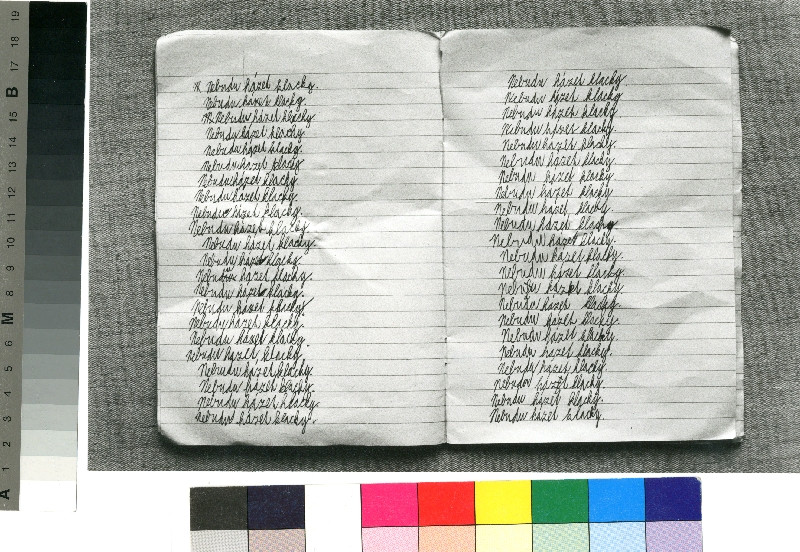 Nebudu házet klacky.
Nebudu házet klacky.
Nebudu házet klacky.
Nebudu házet klacky.
Nebudu házet klacky.
Nebudu házet klacky
Nebudu házet klacky
Nebudu házet klacky.
Nebudu házet klacky.
Nebudu házet klacky.
Nebudu házet klacky.
Nebudu házet klacky.
Nebudu házet klacky.
Nebudu házet klacky.
Nebudu házet klacky.
Nebudu házet klacky.
Nebudu házet klacky.
Nebudu házet klacky.
Nebudu házet klacky.
Nebudu házet klacky.
Nebudu házet klacky.
Nebudu házet klacky.
Nebudu házet klacky
Nebudu házet klacky
Nebudu házet klacky.
Nebudu házet klacky.
Nebudu házet klacky.
Nebudu házet klacky
Nebudu házet klacky.
Nebudu házet klacky
Nebudu házet klacky
Nebudu házet klacky
Nebudu házet klacky.
Nebudu házet klacky.
Nebudu házet klacky.
Nebudu házet klacky.
Nebudu házet klacky.
Nebudu házet klacky.
Nebudu házet klacky.
Nebudu házet klacky.
Nebudu házet klacky.
Nebudu házet klacky.
Nebudu házet klacky.
Nebudu házet klacky.
A 1 2 3 4 5 6 M 8 9 10 11 12 13 14 15 B 17 18 19